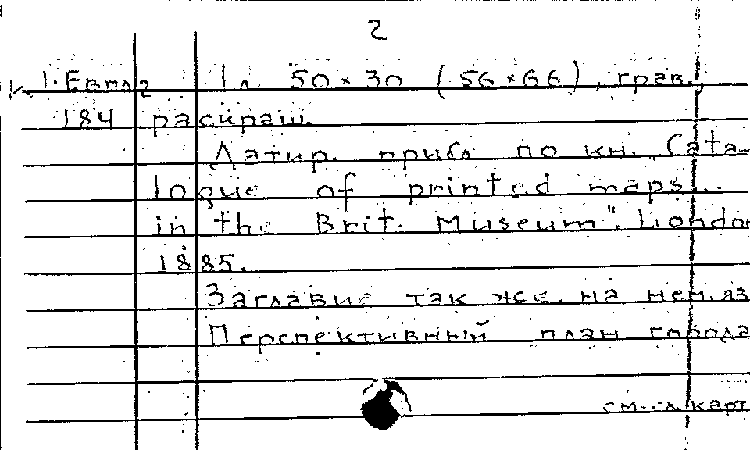 2
1. Евпа2 1 л. 50×30 (56×66), грав.,
184 раскраш.
Датир. прибл по кн. „Cata-
logue of printed maps...
in the Brit. Museum". London
1885.
Заглавие так же на нем. яз
Перспективный план города
см. сл. карт